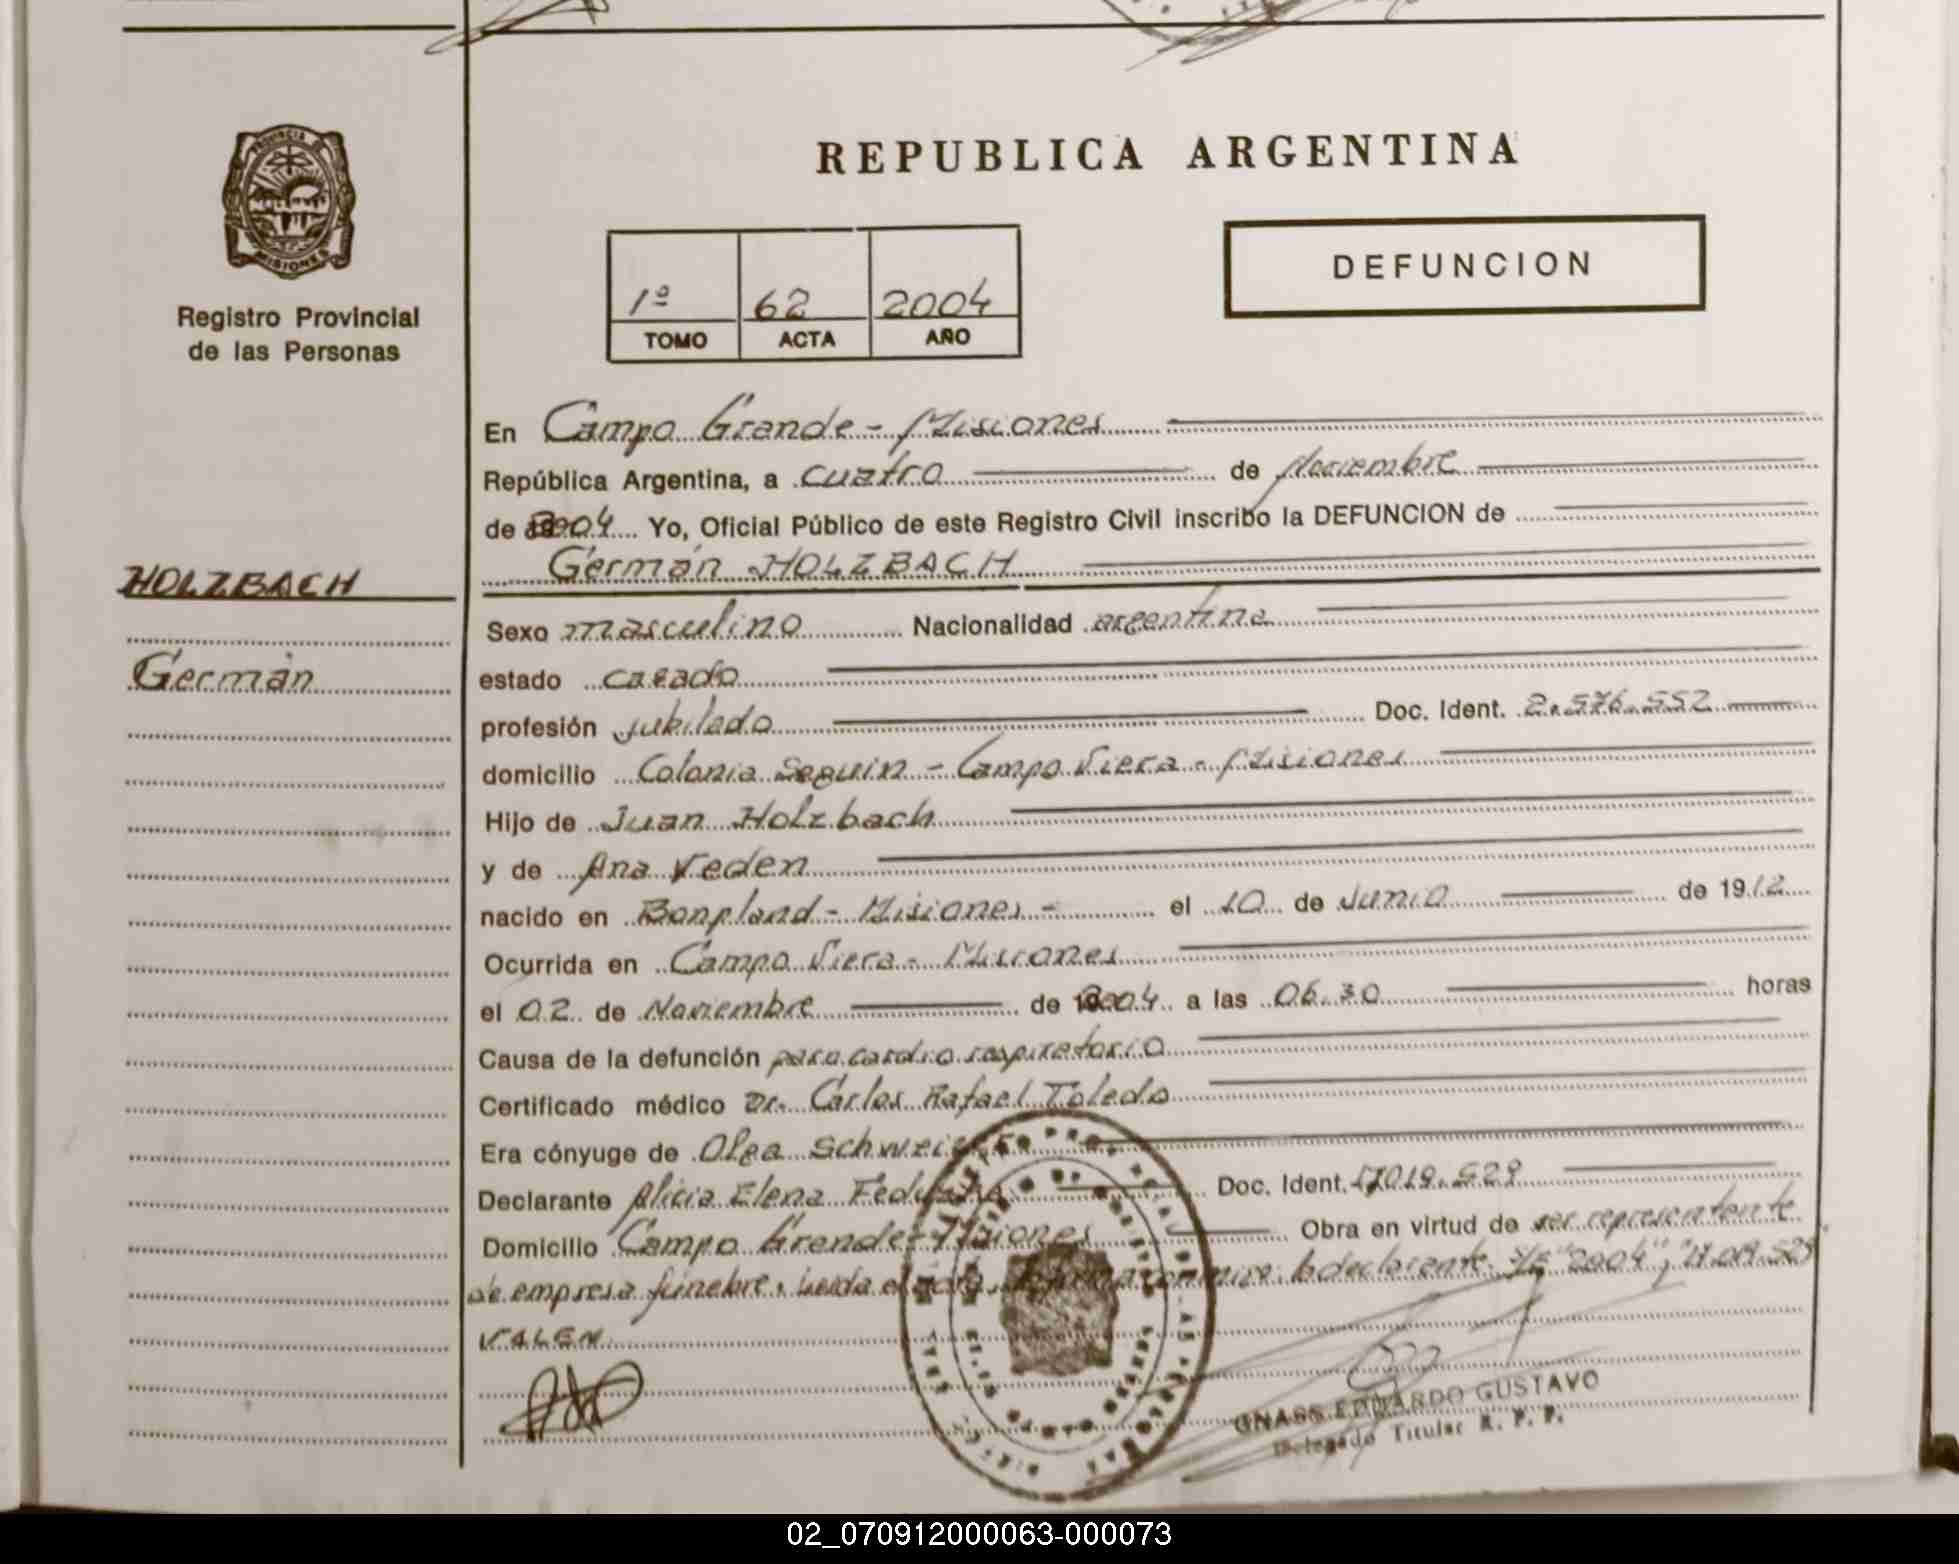 REPUBLICA ARGENTINA
PROVINCIA DE MISIONES
Registro Provincial
de las Personas
1º 62 2004
TOMO ACTA AÑO
DEFUNCION
En Campo Grande - Misiones
República Argentina, a cuatro de Noviembre
de 2004 Yo, Oficial Público de este Registro Civil inscribo la DEFUNCION de
HOLZBACH
Germán HOLZBACH
Sexo masculino Nacionalidad argentina
Germán
estado casado
profesión jubilado Doc. Ident. 2.576.552
domicilio Colonia Seguin - Campo Viera - Misiones
Hijo de Juan Holzbach
y de Ana Veden
nacido en Bonpland - Misiones - el 10 de Junio de 1912
Ocurrida en Campo Viera - Misiones
el 02 de Noviembre de 2004 a las 06.30 horas
Causa de la defunción paro cardio respiratorio
Certificado médico Dr. Carlos Rafael Toledo
Era cónyuge de Olga
Declarante Alicia Elena Doc. Ident. 17.019.529
Domicilio Campo Grande - Misiones Obra en virtud de ser representante
de empresa fúnebre. Leida el acta, la firma conmigo la declarante. S/R "2004", "17.019.529"
VALEN.
GNASS EDUARDO GUSTAVO
Delegado Titular R. P. P.
02_070912000063-000073